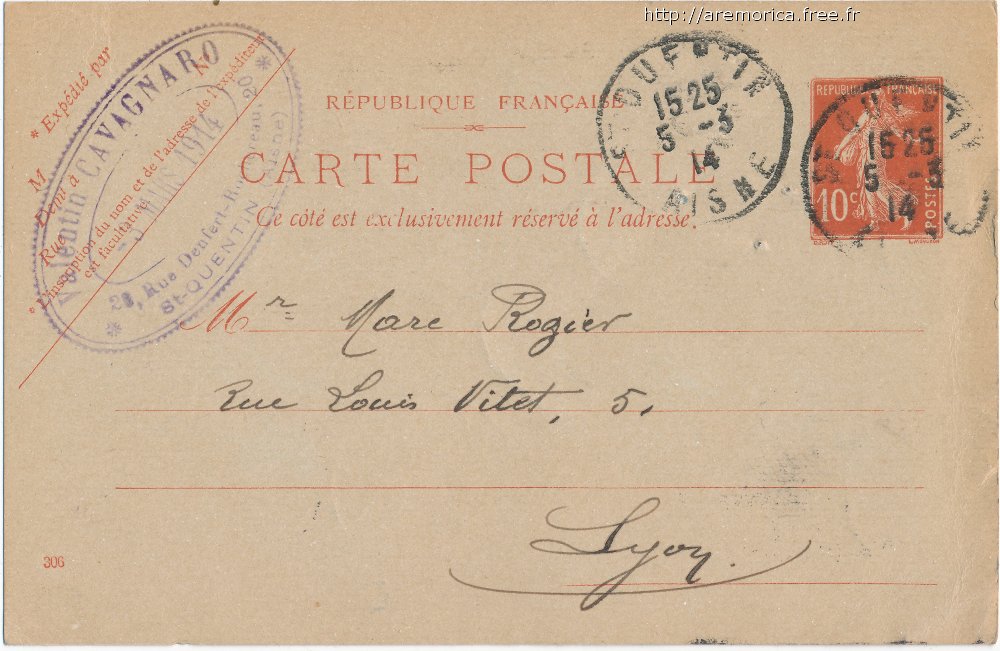 http://aremorica.free.fr
* Expédié par
M
Demt à
Rue N°
* L'inscription du nom et de l'adresse de l'expéditeur
est facultative.
Valentin CAVAGNARO
MARS 1914
* 20, Rue Denfert-Rochereau, 20 *
St-QUENTIN (Aisne)
RÉPUBLIQUE FRANÇAISE
CARTE POSTALE
Ce côté est exclusivement réservé à l'adresse.
ST QUENTIN
15 25
5 -3
14
AISNE
RÉPUBLIQUE FRANÇAISE
10c
POSTES
ST QUENTIN
15 25
5 -3
14
Mr Marc Rozier
Rue Louis Vitet, 5.
Lyon
306